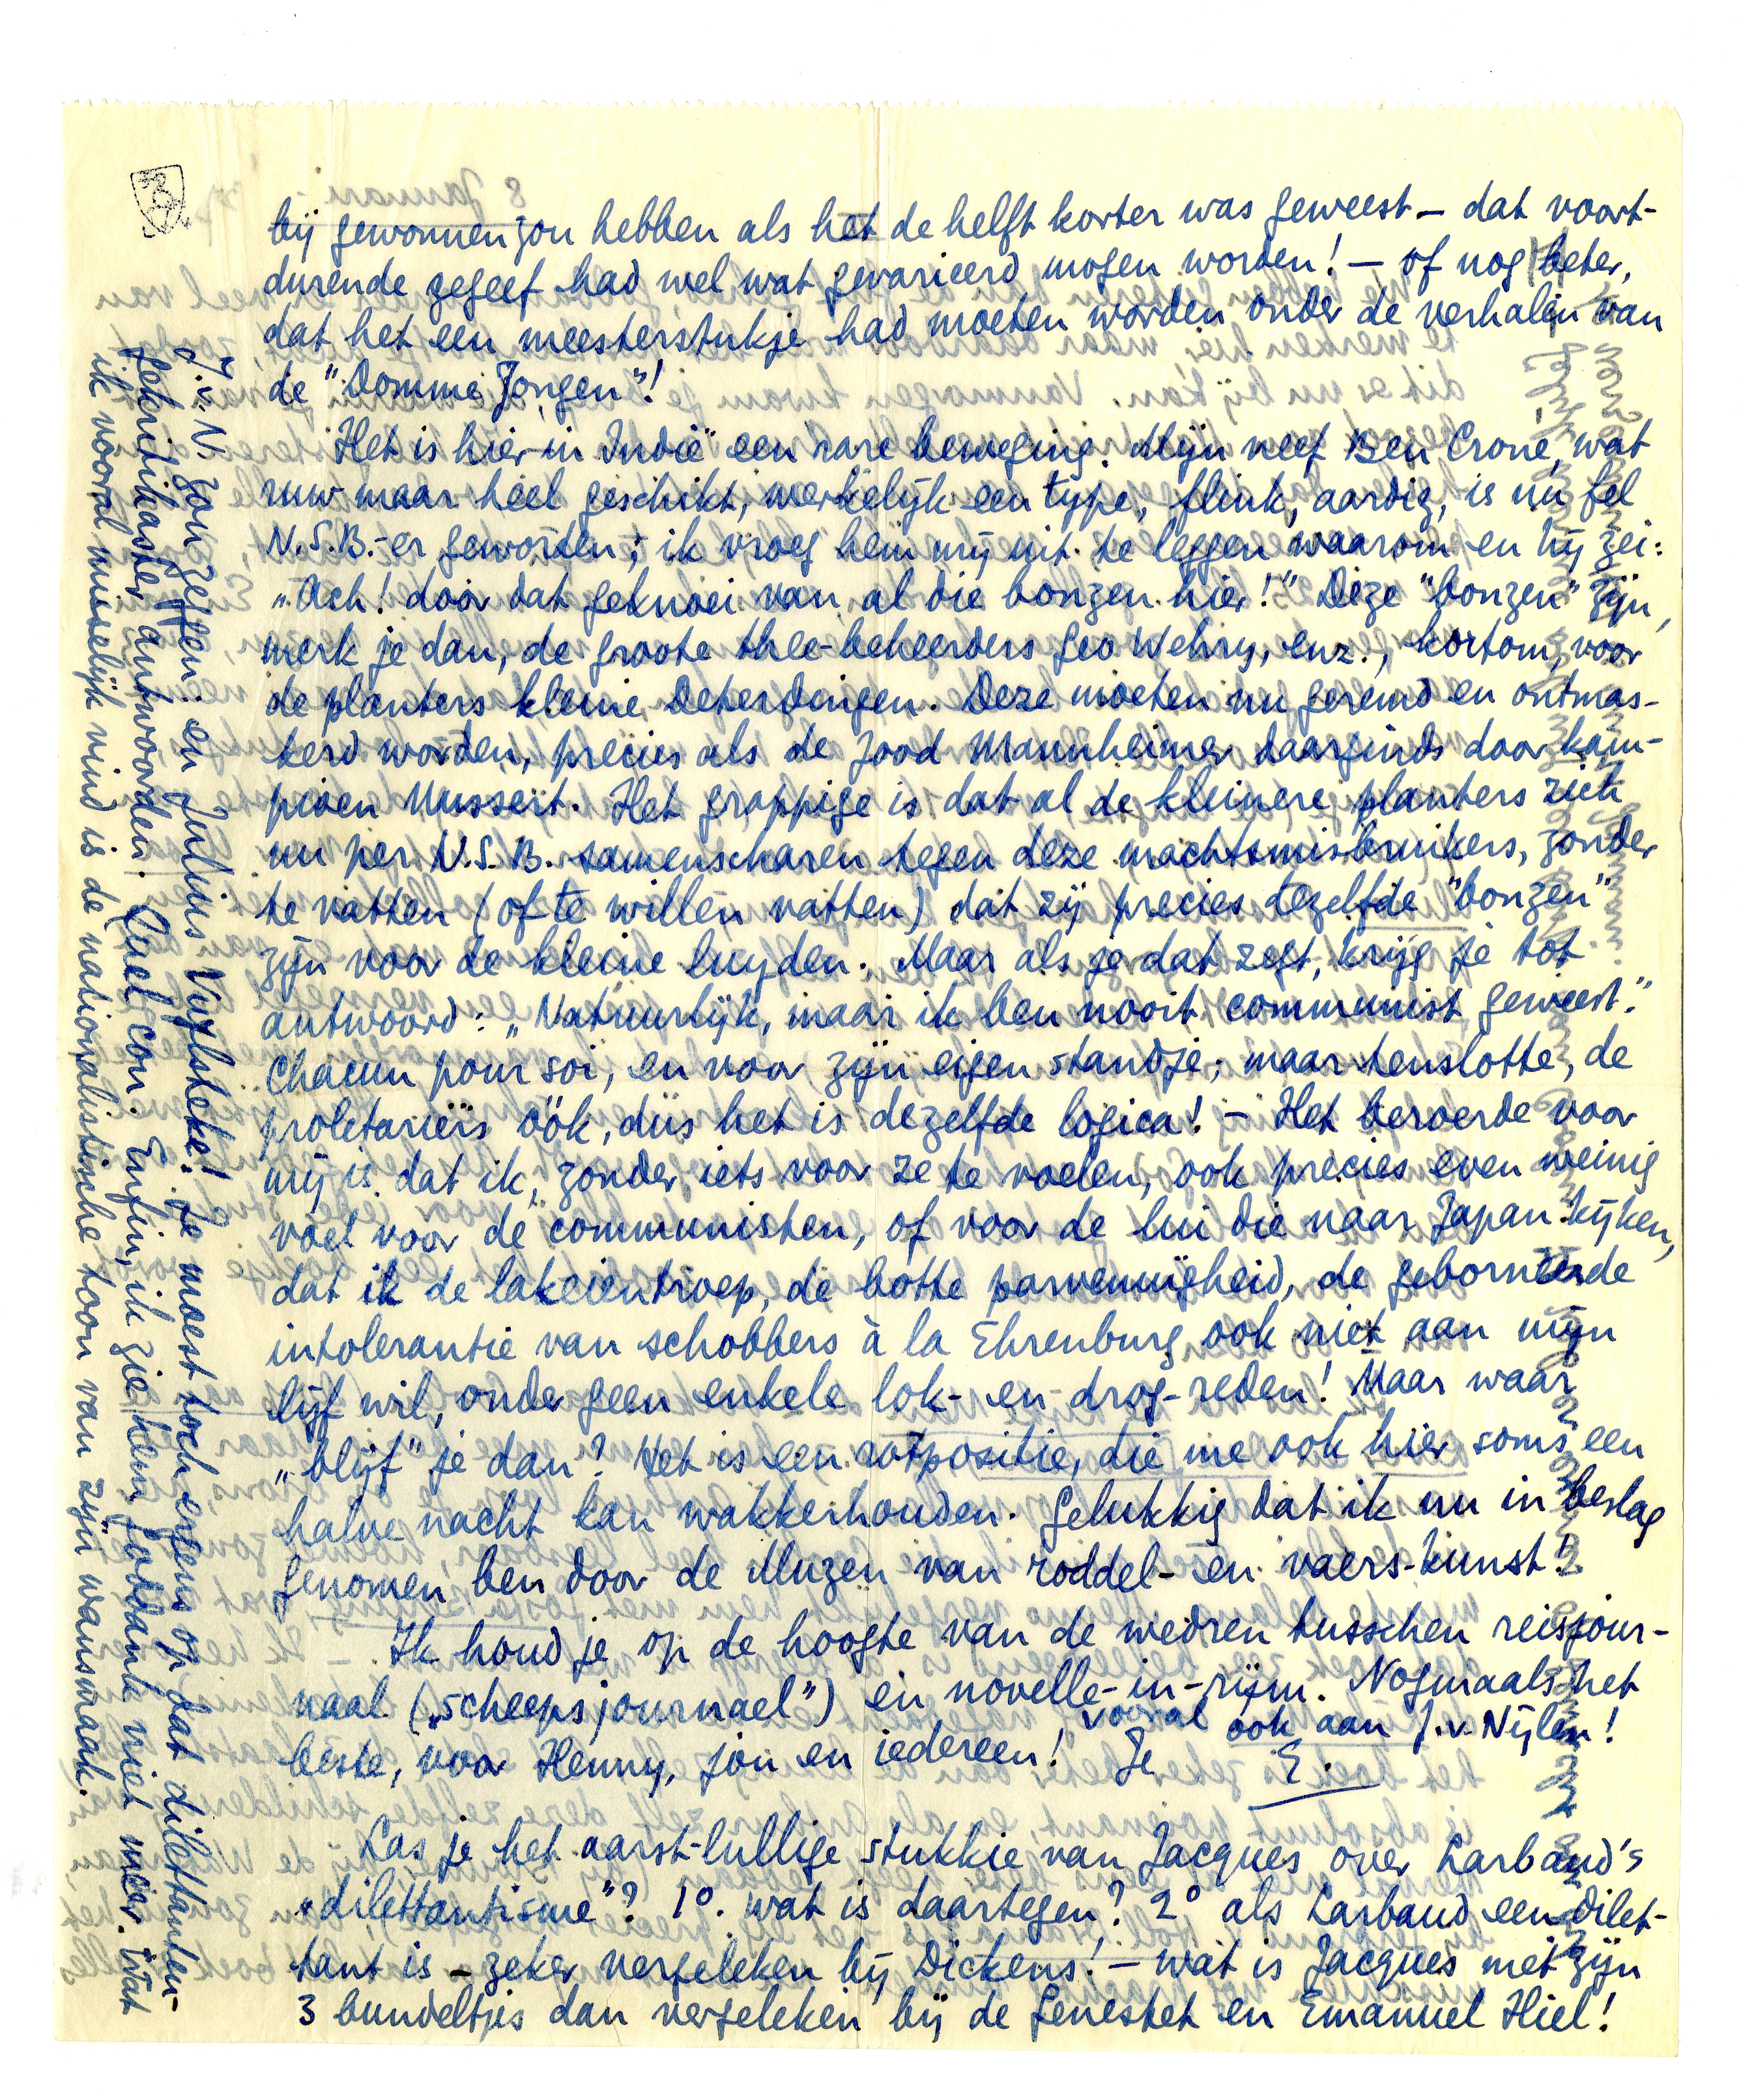 bij gewonnen zou hebben als het de helft korter was geweest – dat voort-
durende gegeef had wel wat gevarieerd mogen worden! – of nog beter,
dat het een meesterstukje had moeten worden onder de verhalen van
de "Domme Jongen"!
Het is hier in Indië een rare beweging. Mijn neef Ben Crone, wat
ruw maar heel geschikt, werkelijk een type, flink, aardig, is nu fel
N.S.B.-er geworden; ik vroeg hem mij uit te leggen waarom en hij zei:
„Ach! door dat geknoei van al die bonzen hier!" Deze "bonzen" zijn,
merk je dan, de groote thee-beheerders Geo Wehry, enz., kortom, voor
de planters kleine Deterdingen. Deze moeten nu geremd en ontmas-
kerd worden, precies als de Jood Mannheimer daarginds door kam-
pioen Mussert. Het grappige is dat al de kleinere planters zich
nu per N.S.B. samenscharen tegen deze machtsmisbruikers, zonder
te vatten (of te willen vatten) dat zij precies dezelfde "bonzen"
zijn voor de kleine luyden. Maar als je dat zegt, krijg je tot
antwoord: „Natuurlijk, maar ik ben nooit communist geweest."
Chacun pour soi, en voor zijn eigen standje; maar tenslotte, de
proletariërs óók, dus het is dezelfde logica! – Het beroerde voor
mij is dat ik, zonder iets voor ze te voelen, ook precies even weinig
voel voor de communisten, of voor de lui die naar Japan kijken,
dat ik de lakeientroep, de botte parvenuigheid, de geborneerde
intolerantie van schobbers à la Ehrenburg ook niet aan mijn
lijf wil, onder geen enkele lok- en drog-reden! Maar waar
„blijf" je dan? Het is een rotpositie, die me ook hier soms een
halve nacht kan wakkerhouden. Gelukkig dat ik nu in beslag
genomen ben door de Muzen van roddel- en vaers-kunst!
Ik houd je op de hoogte van de wedren tusschen reisjour-
naal („scheepsjournael") en novelle-in-rijm. Nogmaals het
beste, voor Henny, jou en iedereen! vooral ook aan J.v. Nijlen!
Je E.
Las je het aarst-lullige stukkie van Jacques over Larbaud's
„dilettantisme"? 1°. wat is daartegen? 2° als Larbaud een dilet-
tant is – zeker vergeleken bij Dickens! – wat is Jacques met zijn
3 bundeltjes dan vergeleken bij de Genestet en Emanuel Hiel!
J.v.N. zou zeggen: en Julius Vuylsteke! Je moest toch ergens op dat dilettanten-
gekritikaster antwoorden. Quel con. Enfin, ik zie hem goddank niet meer. Wat
ik vooral misselijk vind is de nationalistische toon van zijn wansmaak.
8 Januari